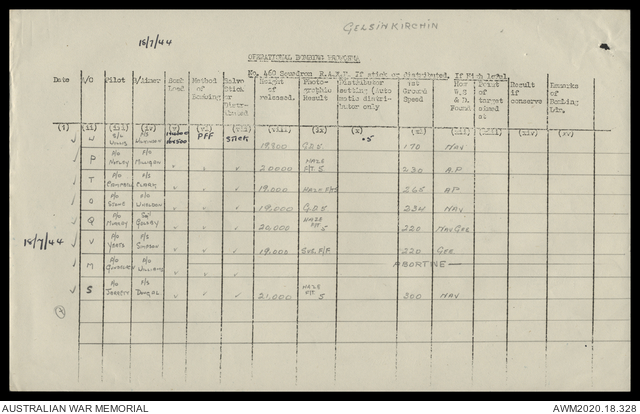 GELSINKIRCHIN
15/7/44
OPERATIONAL BOMBING
No. 460 Squadron R.A.A.F. If stick or Distributed. If High Level.
Date Pilot B/Aimer Bomb Load Method of Bombing Salvo Stick or Distributed Height of released. Photographic Result Distributor setting (Automatic distributor only 1st Ground Speed How W.S & D. Found Point of target aimed at Result if conserve Remarks of Bombing Ldr.
(i) (ii) (iii) (iv) (v) (vi) (vii) (viii) (ix) (x) (xi) (xii) (xiii) (xiv) (xv)
PFF STICK 18,900 G.D.V. .5 170 NAV
P P/O F/S 20000 HAZE F/T 5 230 A.P
T P/O CAMPBELL F/S CLARK 19,000 HAZE 265 AP
O P/O STONE F/S 19,000 G.D.V. 234 NAV
Q P/O MURRAY 20,000 HAZE F/T 5 220 NAV GEE
15/7/44 V P/O YEATS F/S SIMPSON 19,000 220 GEE
M P/O F/S WILLIAMS ABORTIVE
S P/O JARRETT F/S DOUGAL 21,000 HAZE F/T 5 300 NAV
AUSTRALIAN WAR MEMORIAL
AWM2020.18.328